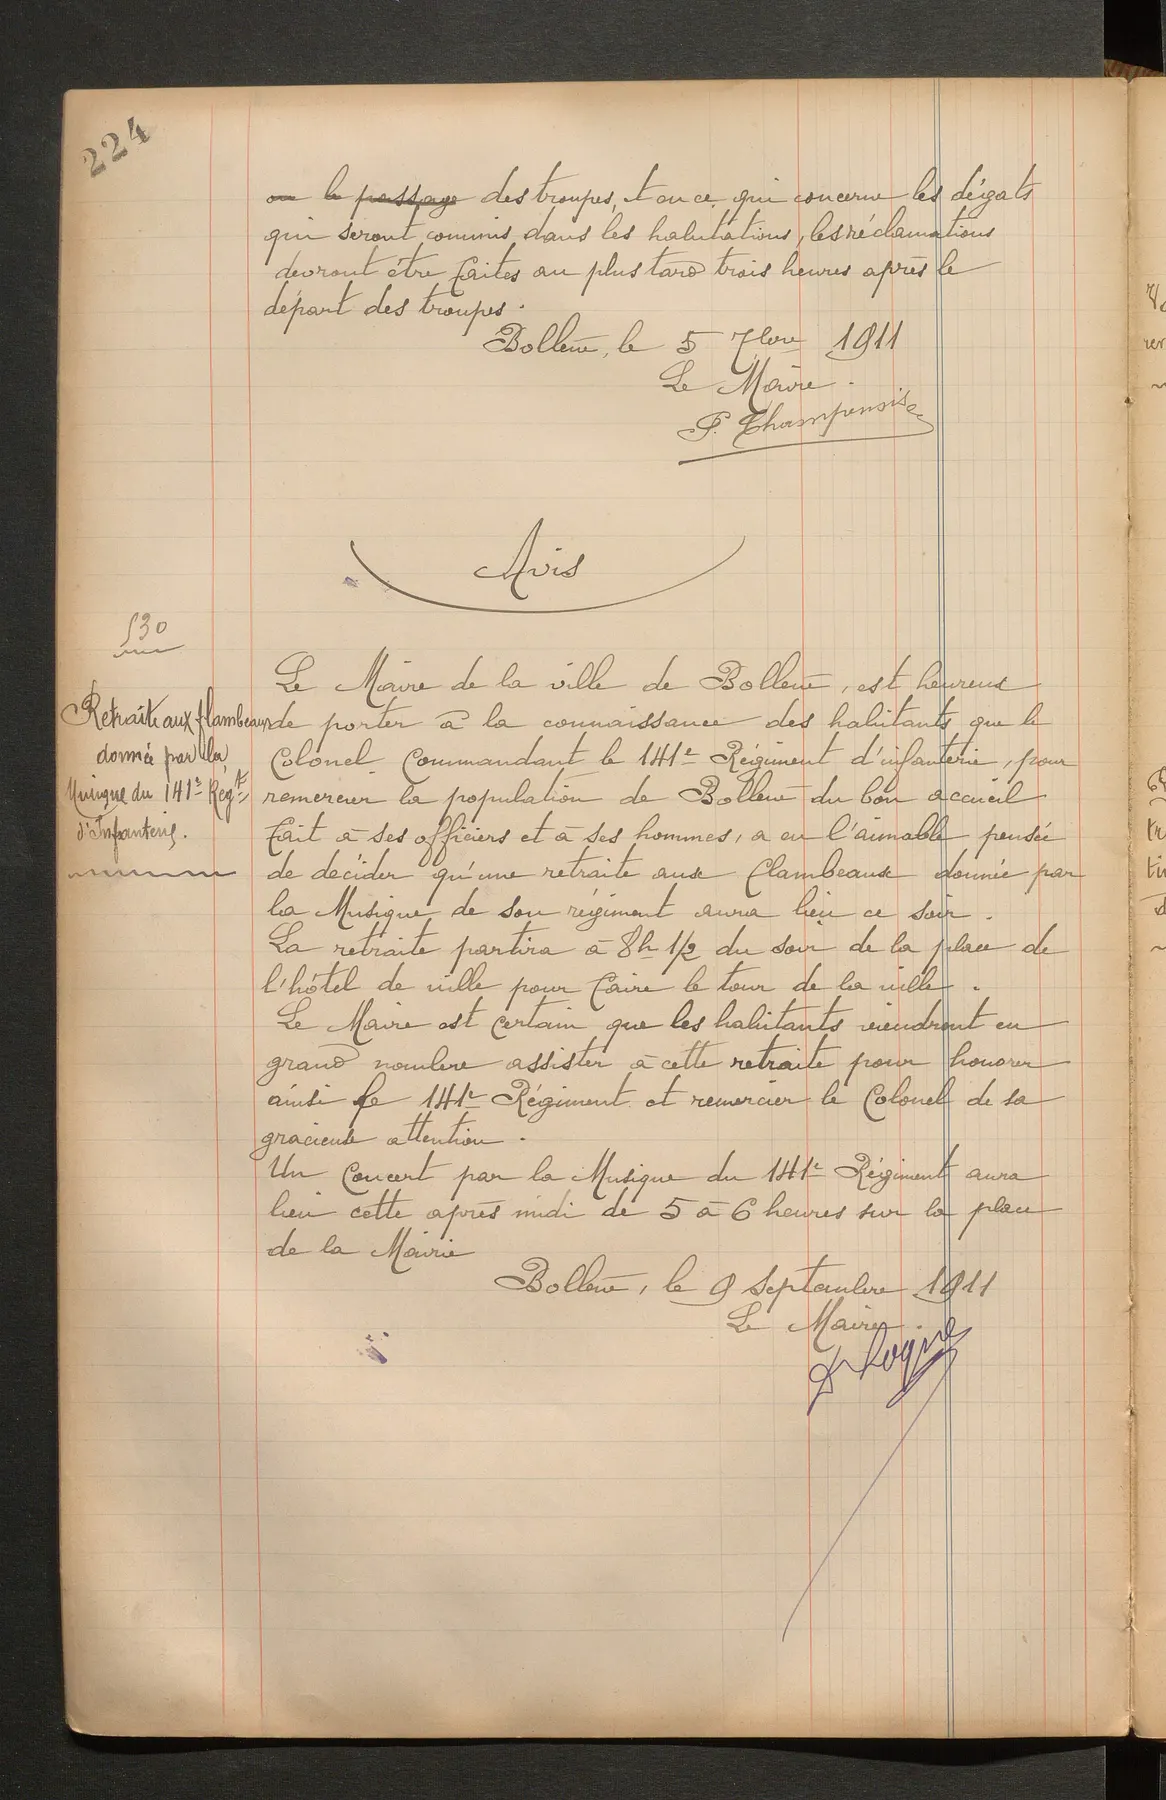 224
ou le passage des troupes, et en ce qui concerne les dégats
qui seront commis dans les habitations, les réclamations
devront être faites au plus tard trois heures après le
départ des troupes.
Bollène, le 5 7bre 1911
Le Maire.
P. Champenois
Avis
530
Retraite aux flambeaux
donnée par la
Musique du 141e Régt
d'Infanterie.
Le Maire de la ville de Bollène, est heureux
de porter à la connaissance des habitants que le
Colonel Commandant le 141e Régiment d'infanterie, pour
remercier la population de Bollène du bon accueil
fait à ses officiers et à ses hommes, a eu l'aimable pensée
de décider qu'une retraite aux flambeaux donnée par
la Musique de son régiment aura lieu ce soir.
La retraite partira à 8h 1/2 du soir de la place de
l'hôtel de ville pour faire le tour de la ville.
Le Maire est certain que les habitants viendront en
grand nombre assister à cette retraite pour honorer
ainsi le 141e Régiment et remercier le Colonel de sa
gracieuse attention.
Un Concert par la Musique du 141e Régiment aura
lieu cette après midi de 5 à 6 heures sur la place
de la Mairie
Bollène, le 9 Septembre 1911
Le Maire.